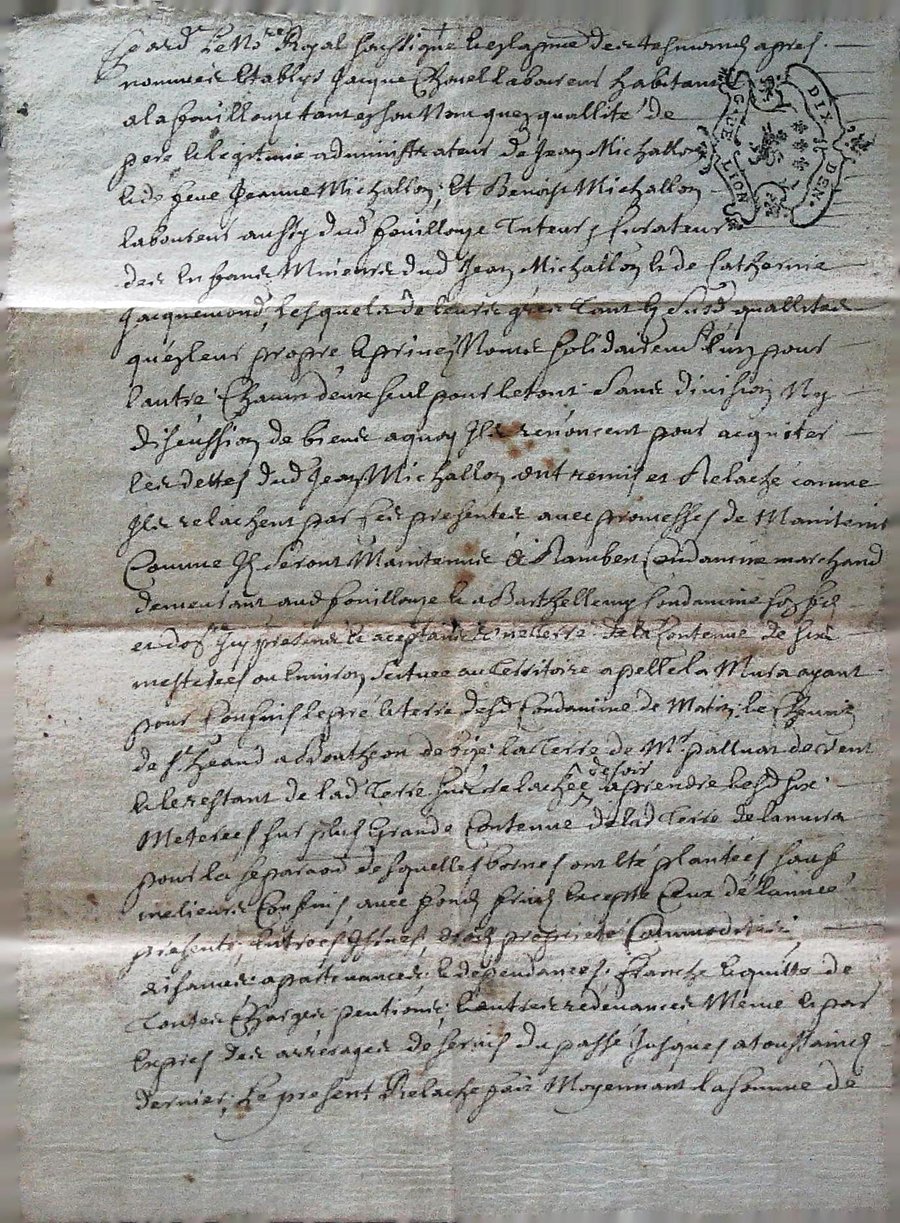 Royal soussigné et en presence des tesmoings apres
nommes Etablys Jacque Thouel laboureur habitant
a la fouillouze tant en son Nom que en quallité de
pere et legitime administrateur de Jean Michallon
et de feue Jeanne Michallon, Et Benoist Michallon
laboureur aussy dud fouillouze Tuteur et Curateur
des Enfans Mineurs dud Jean Michallon et de Catherine
Jacquemond, lesquels de leurs gres Tant Esd quallites
qu'en leur propre et privez Noms solidairemt l'un pour
l'autre Chacun deux seul pour le tout Sans division Ny
discussion de biens a quoy Ils renoncent pour acquiter
les dettes dud Jean Michallon ont remis et Relaché comme
Ils relachent par ces presentes avec promesses de Maintenir
Comme Ils seront Maintenus a Rambert Condamine marchand
demeurant aud fouillouze et a Barthellemy Condamine son fils
presents et aceptants Une Terre de la Contenue de six
mesterees ou Environ Scituee au Territoire apellé la Mura ayant
pour Confins le pré et terre desd Condamine de Matin, le Chemin
de St heand a Bouthéon de bize, la Terre de Mr palluat de Vent
et le restant de lad Terre de soir a prendre lesd six
Meterees sur plus Grande Contenue de lad Terre de lamura
pour la separaon desquelles bornes ont eté plantées sauf
meilieurs Confins, avec fonds fruits Excepté Ceux de l'année
presente, Entrees Issues, droits proprieté Commodités
aisances apartenances, et dépendances, franche et quitte de
Toutes Charges pentions, et autres redevances Meme et par
Expres des arrerages de servis du passé Jusques a toussaincts
dernier, Le present Relache fait Moyennant la somme de
G. DE LION
DIX DEN.